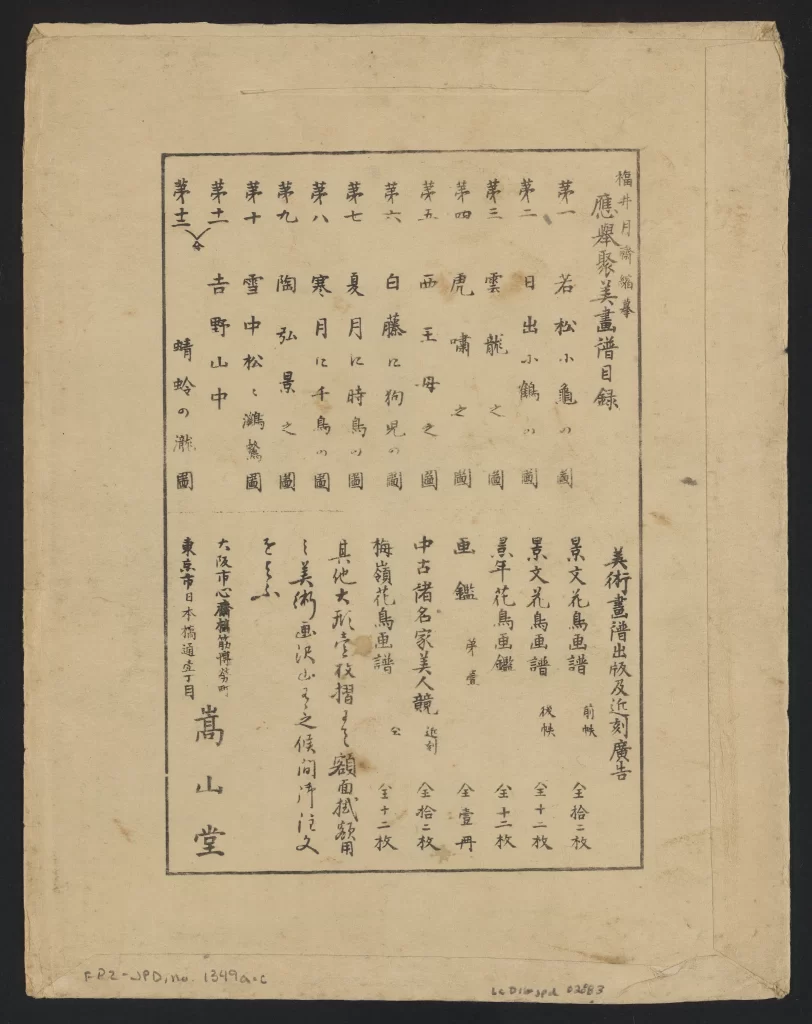 福井月齋縮摹
應舉聚美畫譜目録
第一 若松小龜の圖
第二 日出小鶴の圖
第三 雲龍之圖
第四 虎嘯之圖
第五 西王母之圖
第六 白藤に狗児の圖
第七 夏月に時鳥の圖
第八 寒月に千鳥の圖
第九 陶弘景之圖
第十 雪中松ニ鷹圖
第十一 吉野山中
第十二 合 蜻蛉の瀧圖
美術畫譜出版及近刻廣告
景文花鳥画譜 前帙 全拾二枚
景文花鳥画譜 後帙 全十二枚
景年花鳥画鑑 全十二枚
画鑑 第壹 全壹冊
中古諸名家美人競 近刻 全拾二枚
梅嶺花鳥画譜 仝 全十二枚
其他大形壱枚摺并ニ額面掛額用
ニ美術画沢山有之候間御注文
を乞ふ
大阪市心齋橋筋博労町
東京市日本橋通壹丁目
嵩山堂
FP2-JPD, no. 1349a-c
LCDLC-jpd 02583